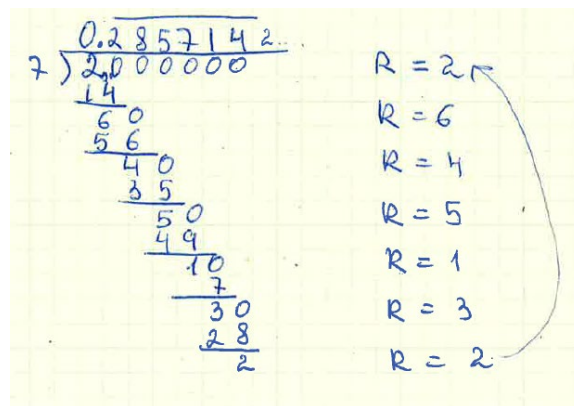 0.2857142..
7)2.000000
14
60
56
40
35
50
49
10
7
30
28
2
R = 2
R = 6
R = 4
R = 5
R = 1
R = 3
R = 2